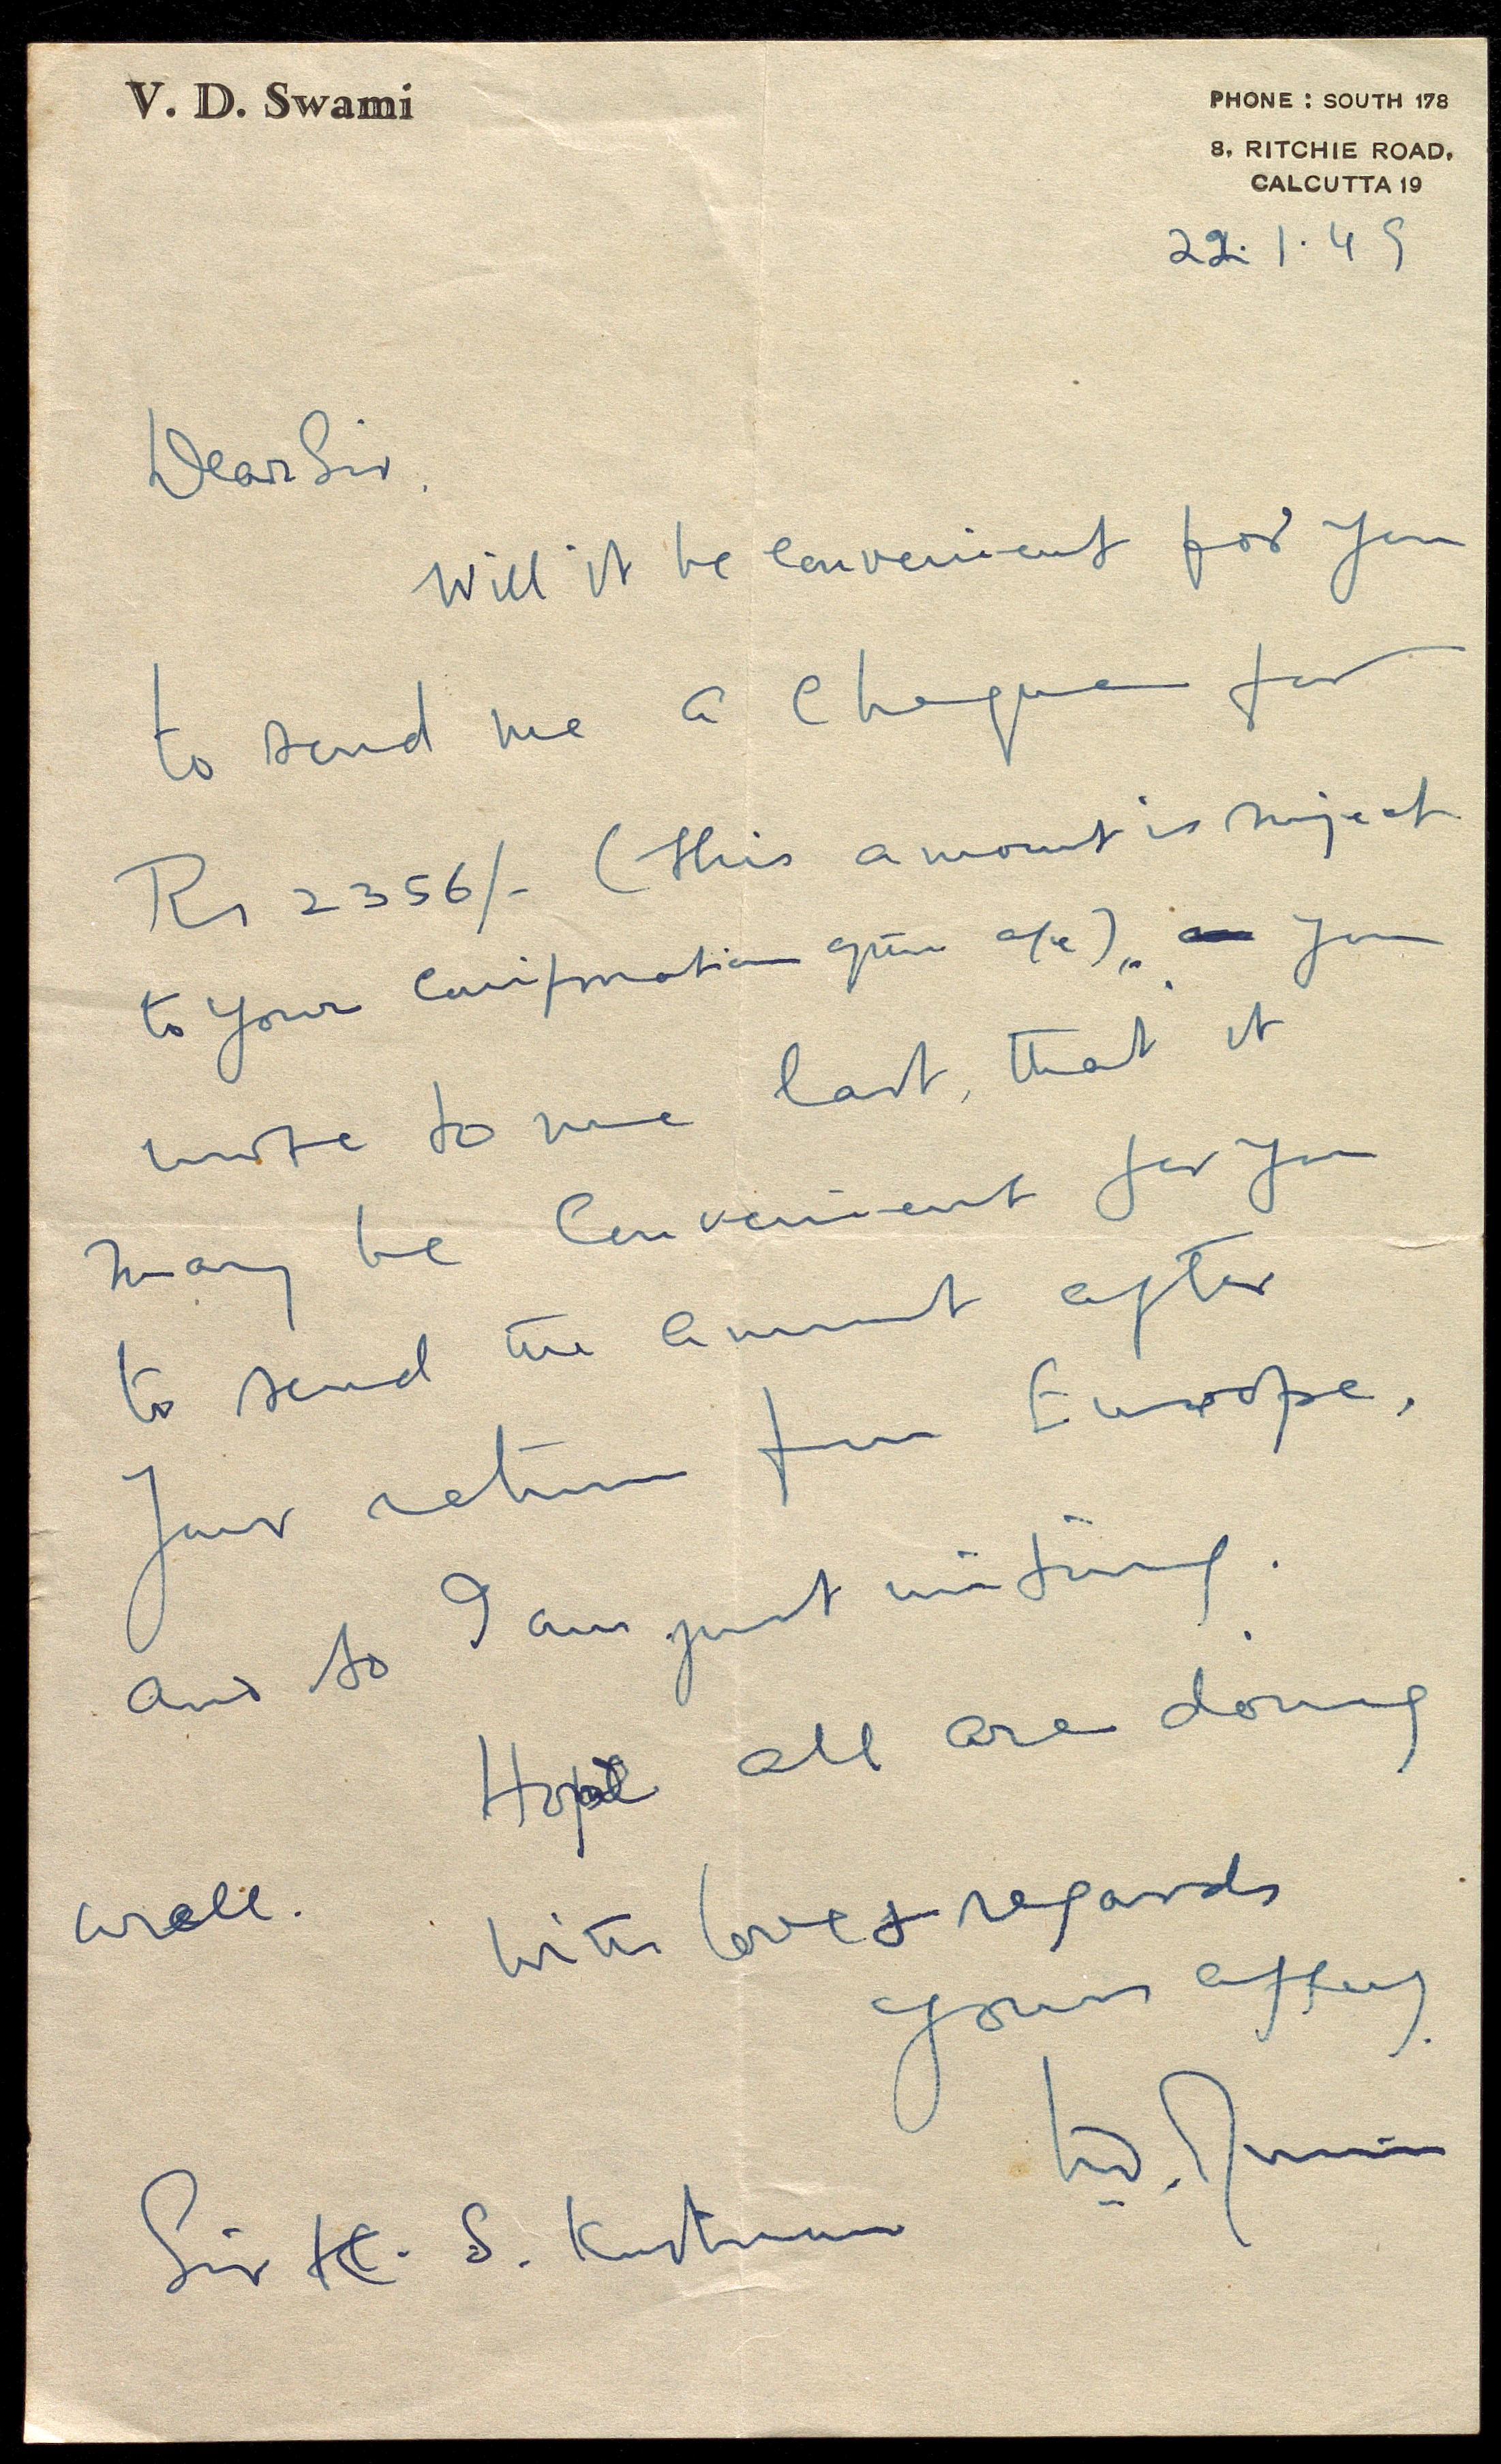 V. D. Swami
PHONE : SOUTH 178
8, RITCHIE ROAD,
CALCUTTA 19
22.1.49
Dear Sir,
Will it be convenient for you
to send me a cheque for
Rs 2356/- (this amount is subject
to your confirmation a/c), you
wrote to me last, that it
may be convenient for you
to send the amount after
your return from Europe,
and so I am just writing.
Hope all are doing
well.
With love & regards
yours affly.
Sir K. S.